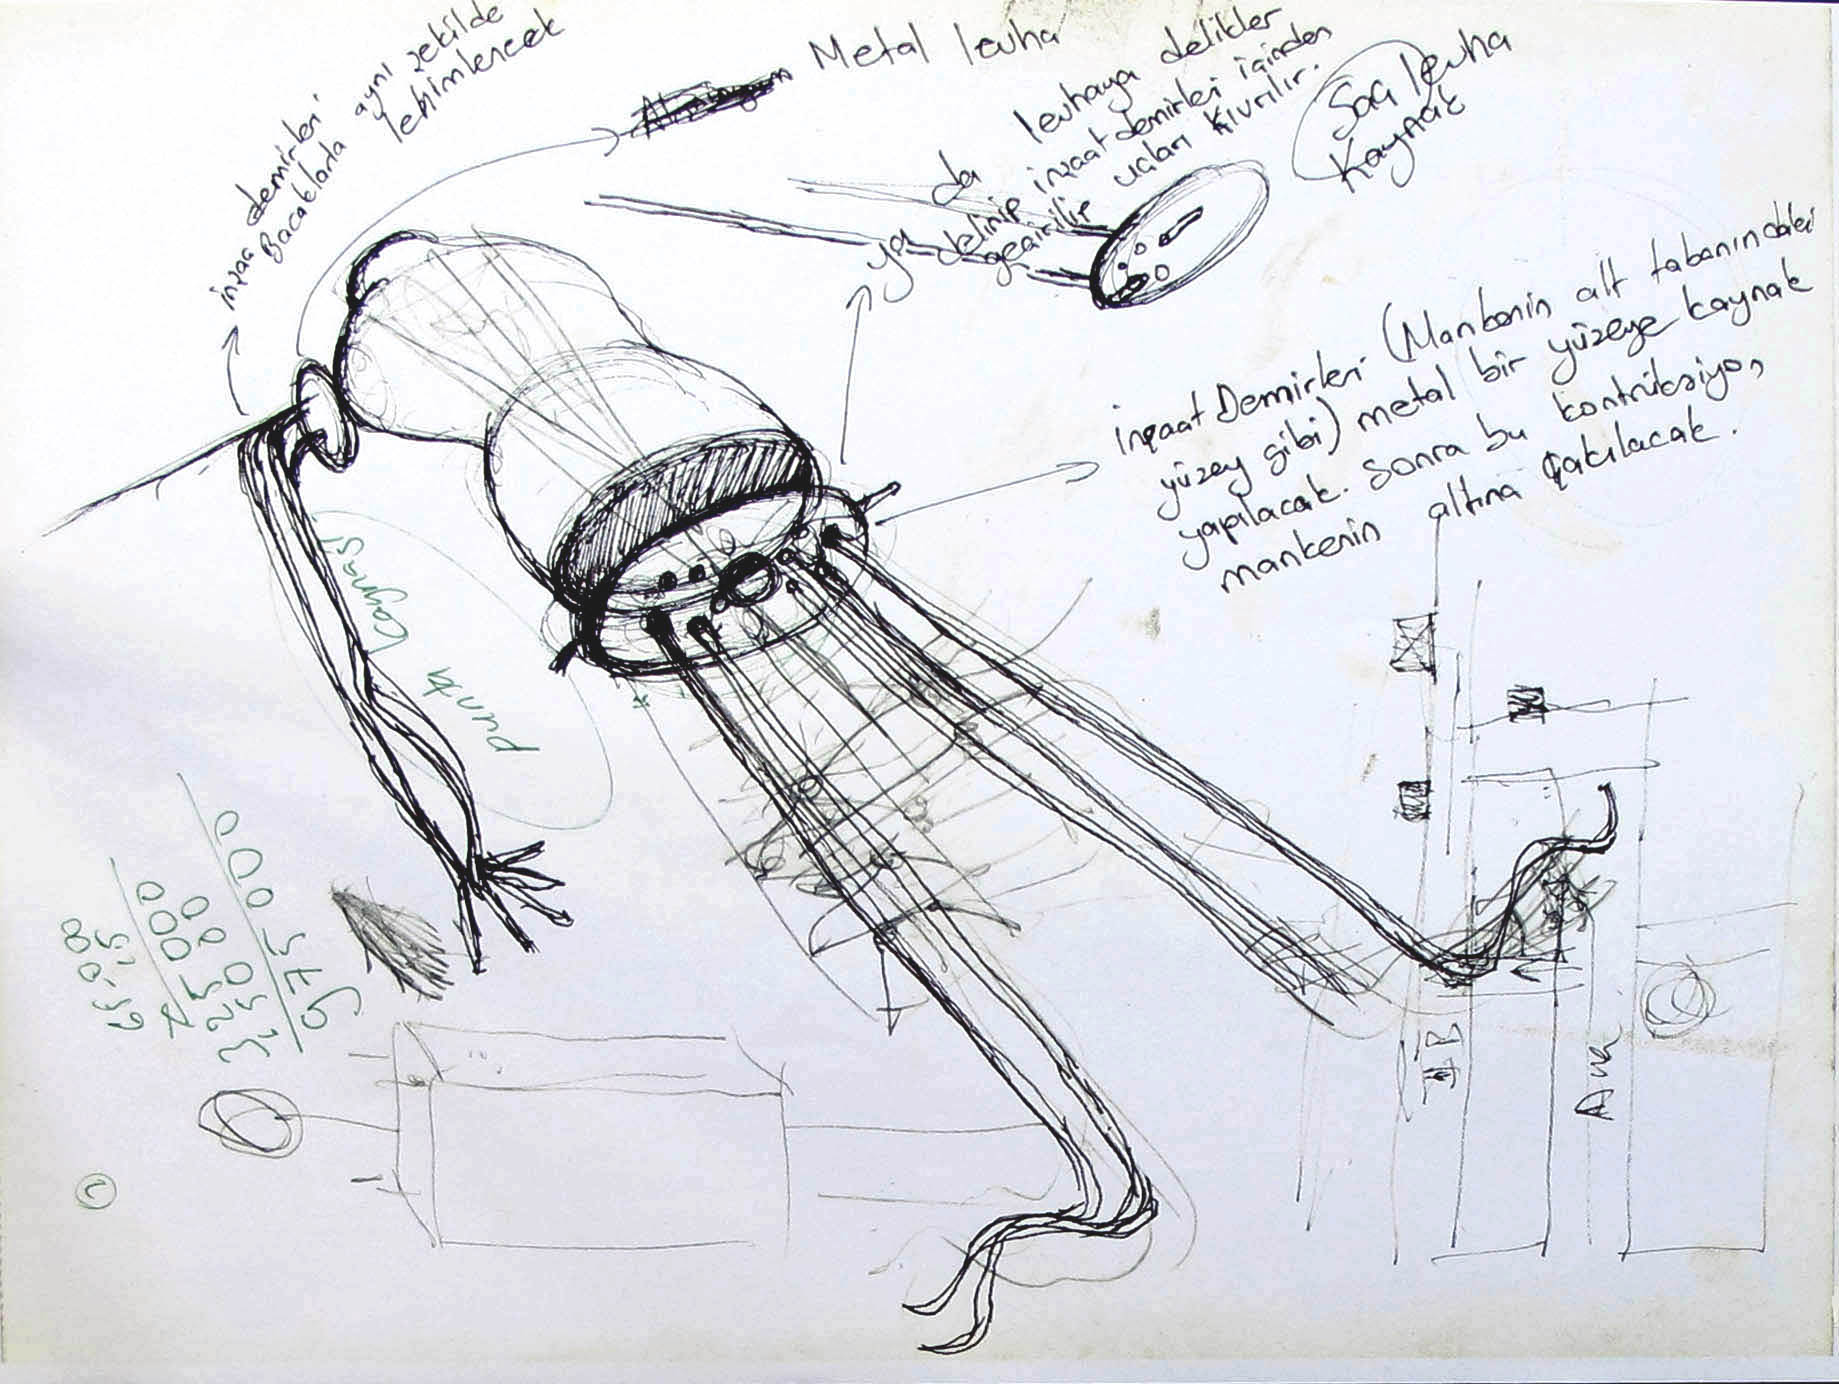 inşaa demirleri aynı şekilde
Bacaklarla lehimlenecek
Metal levha
ya da levhaya delikler
delinip inşaat demirleri içinden
geçirilip uçları kıvrılır.
Sac levha
Kaynak
inşaat Demirleri (Mankenin alt tabanındaki
yüzey gibi) metal bir yüzeye kaynak
yapılacak. Sonra bu kontrüksiyon
mankenin altına çakılacak.
punta kaynağı
65.00
15
000
325000
975000
2
Ana